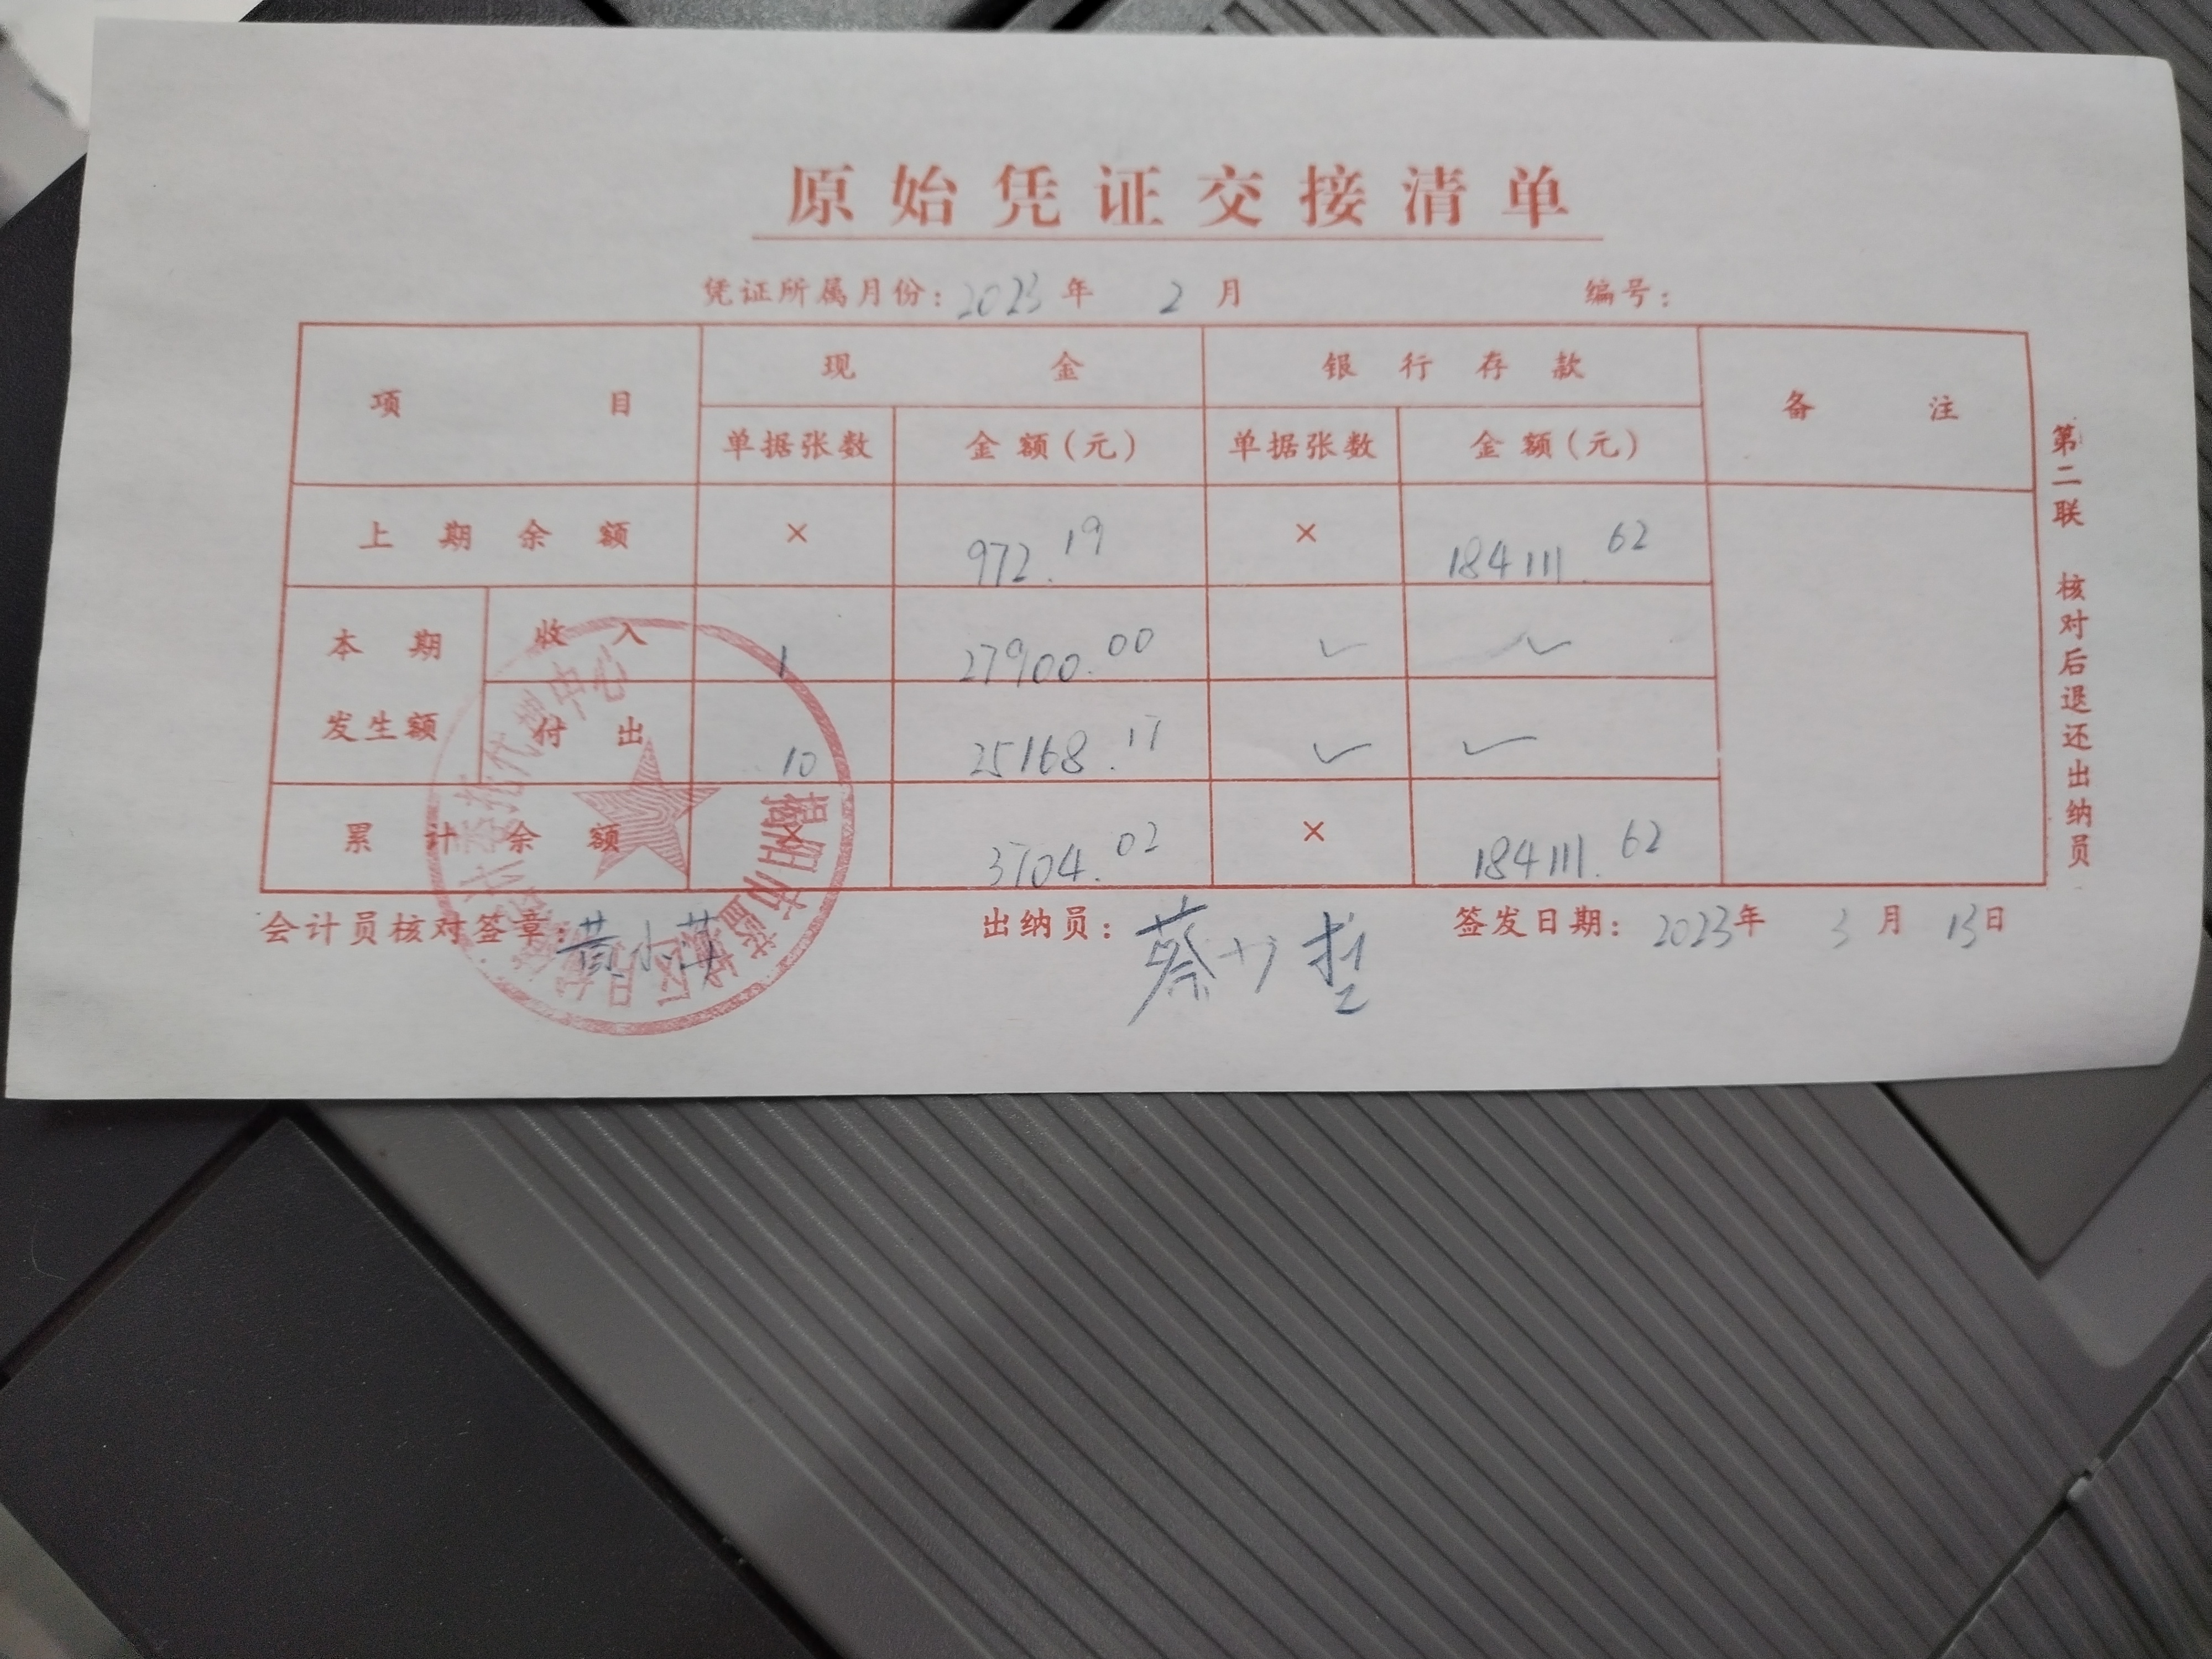 原始凭证交接清单
凭证所属月份：2023年 2月 编号：
项目 现金 银行存款 备注
单据张数 金额(元) 单据张数 金额(元)
上期余额 × 972.19 × 184111.62
本期发生额 收入 1 27900.00 ✓ ✓
付出 10 25168.17 ✓ ✓
累计余额 × 3704.02 × 184111.62
会计员核对签章： 出纳员：蔡 签发日期：2023年 3月 13日
第二联 核对后退还出纳员
揭阳市蓝城区月城
代理中心